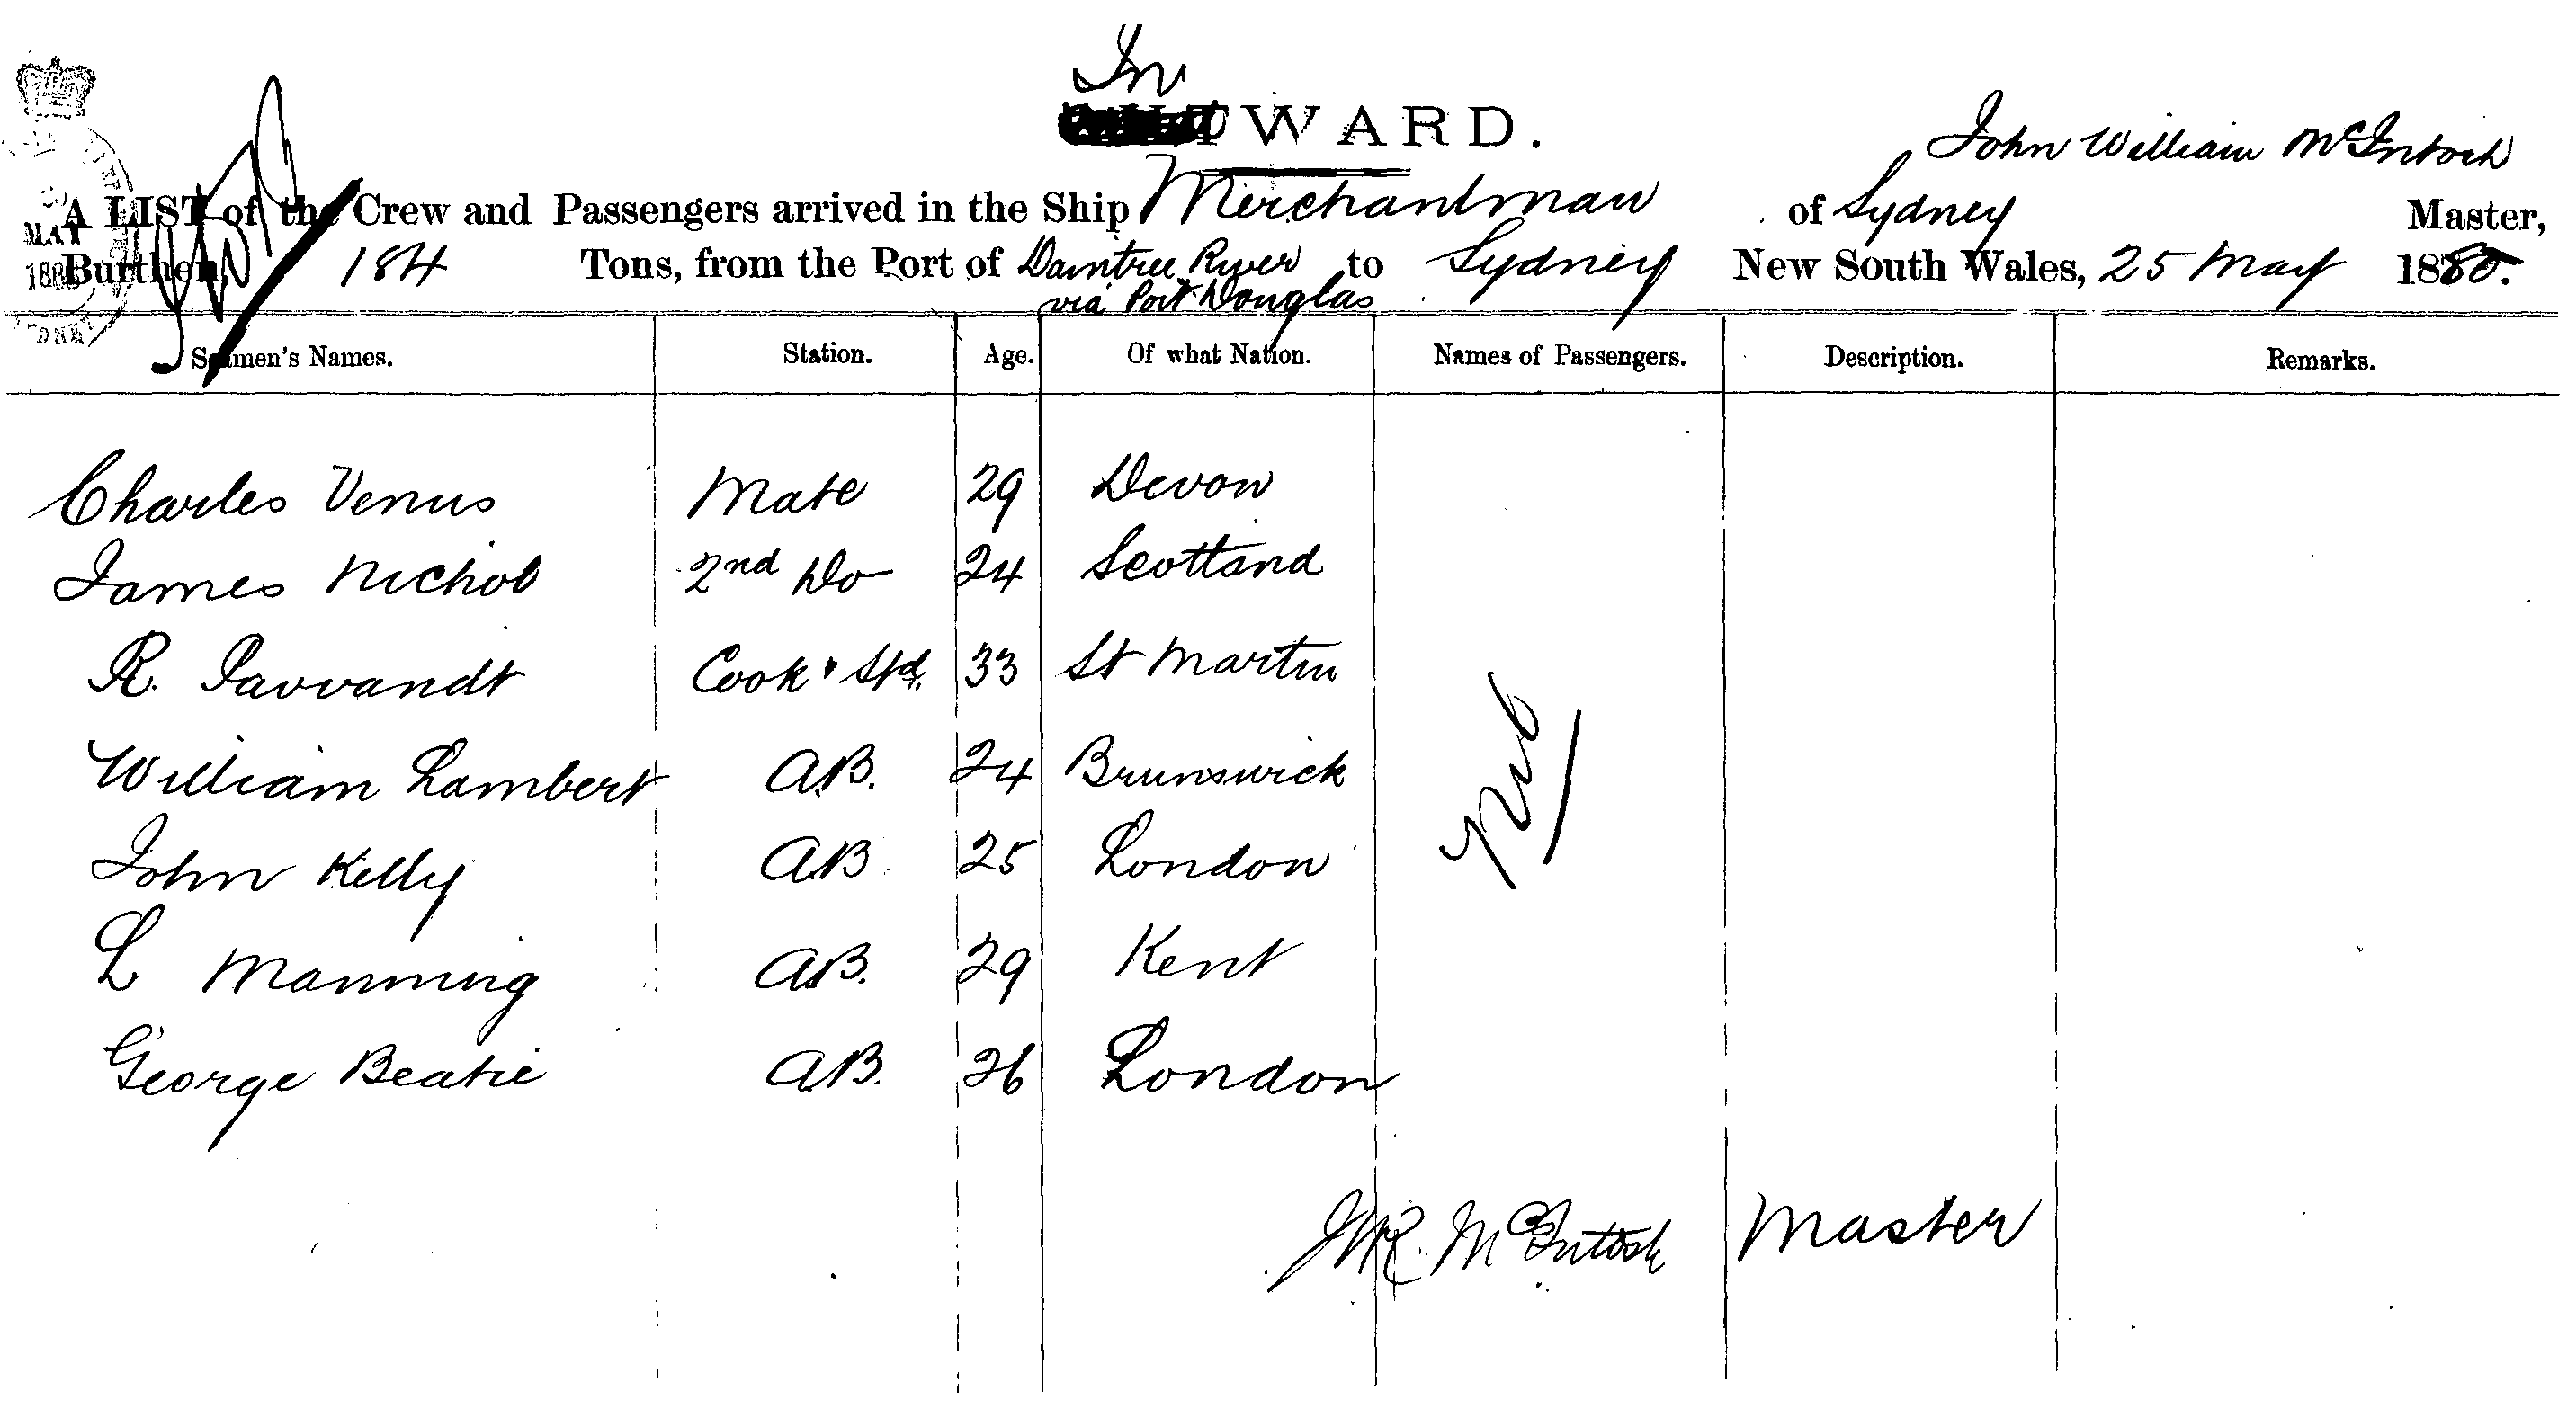 In
WARD.
John William McIntosh
A LIST of the Crew and Passengers arrived in the Ship Merchantman of Sydney Master,
Burthen, 184 Tons, from the Port of Daintree River to Sydney New South Wales, 25 May 1880.
via Port Douglas
MAY
Seamen's Names. Station. Age. Of what Nation. Names of Passengers. Description. Remarks.
Charles Venus Mate 29 Devon
James Nichol 2nd Do 24 Scotland
R. 33 St Martin Cook & Std.
William Lambert A.B. 24 Brunswick
John Kelly A.B 25 London
Nil
L Manning A.B. 29 Kent
George Beatie A.B. 26 London
McIntosh Master